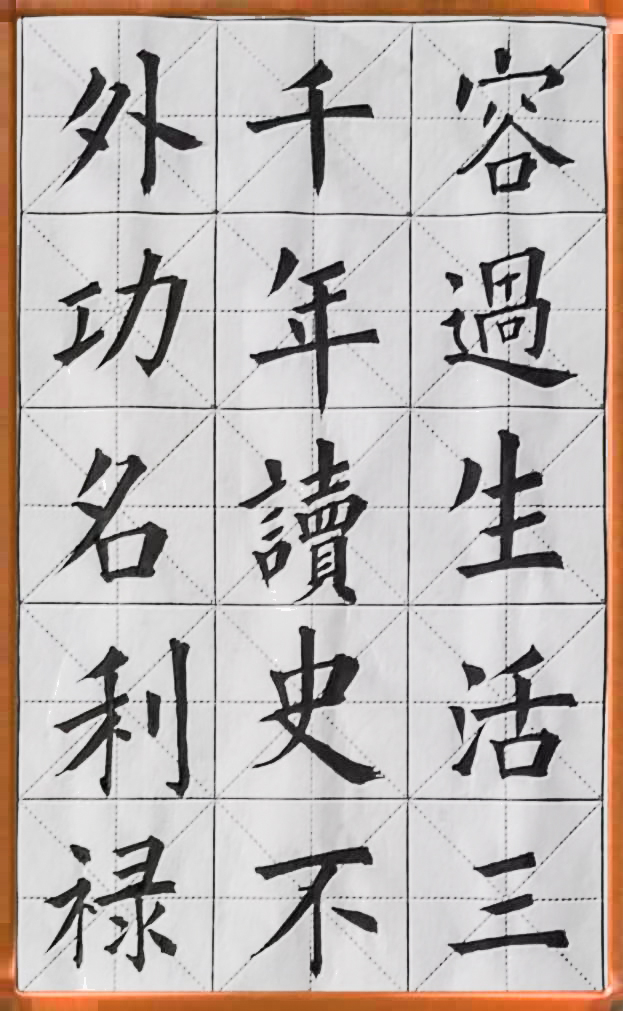 容過生活三
千年讀史不
外功名利禄